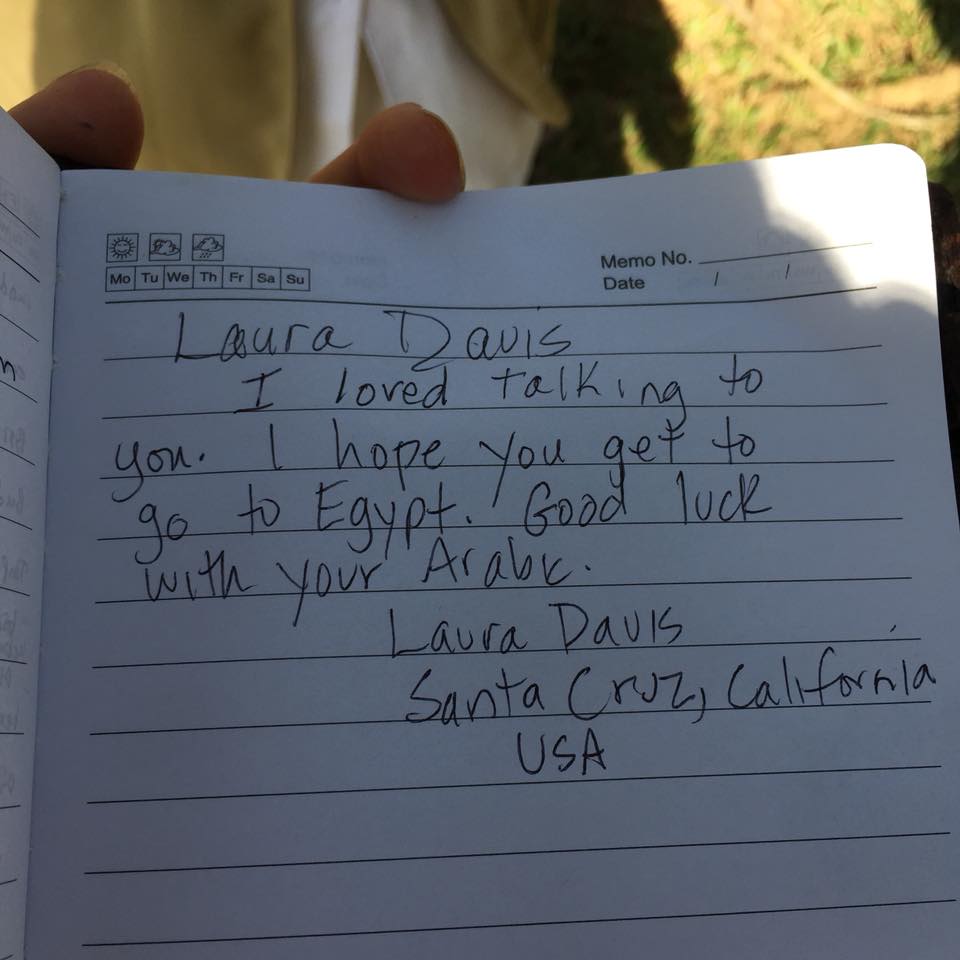 Mo Tu We Th Fr Sa Su
Memo No.
Date / /
Laura Davis
I loved talking to
you. I hope you get to
go to Egypt. Good luck
with your Arabic.
Laura Davis
Santa Cruz, California
USA